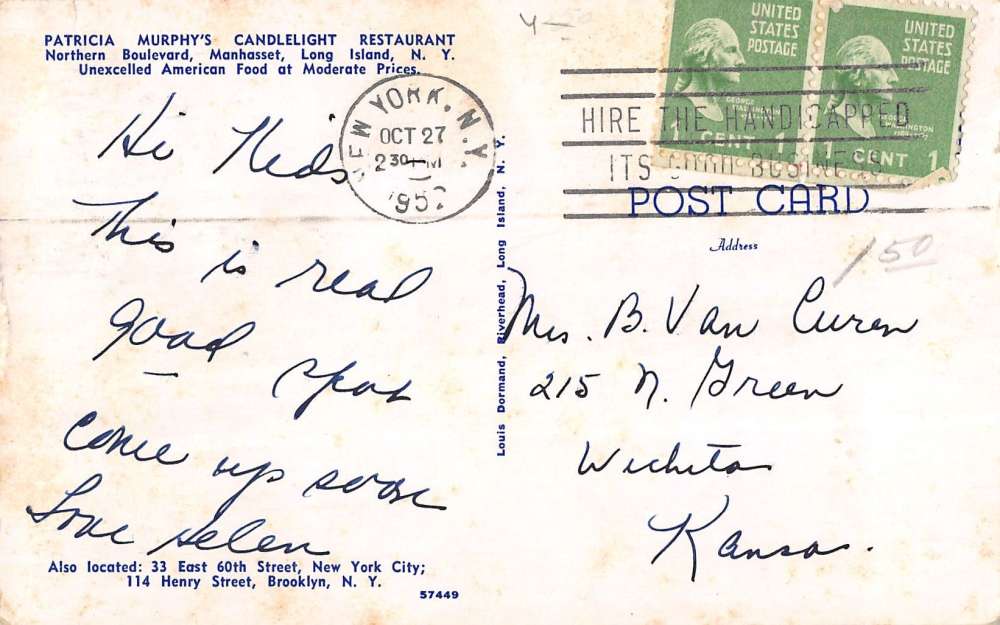 PATRICIA MURPHY'S CANDLELIGHT RESTAURANT
Northern Boulevard, Manhasset, Long Island, N. Y.
Unexcelled American Food at Moderate Prices.
Hi Kids
This is real
good spot
come up soon
Love Helen
Also located: 33 East 60th Street, New York City;
114 Henry Street, Brooklyn, N. Y.
57449
Louis Dormand, Riverhead, Long Island, N. Y.
NEW YORK, N.Y.
OCT 27
2 30 PM
1952
HIRE THE HANDICAPPED
ITS GOOD BUSINESS
UNITED
STATES
POSTAGE
GEORGE
WASHINGTON
1 CENT 1
UNITED
STATES
POSTAGE
GEORGE
WASHINGTON
1 CENT 1
POST CARD
Address
1 50
Mrs. B. Van Curen
215 N. Green
Wichita
Kansas.